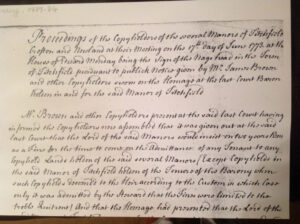 Proceedings of the Copyholders of the several Manors of Pitchfield
Crofton and Newland at their Meeting on the 17th day of June 1773 at the
House of Edward Monday being the Sign of the Nags head in the Town
of Pitchfield pursuant to publick Notice given by Mr. James Brown
and other Copyholders sworn on the Homage at the last Court Baron
holden in and for the said Manor of Pitchfield
Mr. Brown and other Copyholders present at the said last Court having
informed the Copyholders now assembled that it was given out at the said
last Court that the Lord of the said Manors would insist on two years Rent
as a Fine for the time to come on the Admittance of any Tenant to any
Copyhold Lands holden of the said several Manors (Except Copyholds in
the said Manor of Pitchfield holden of the Tenure of the Barony when
such Copyholds descended to the Heir according to the Custom in which Case
only it was admitted by the Steward that the Fine was limited to the
treble Quitrent) And that the Homage had presented that the Lord of the